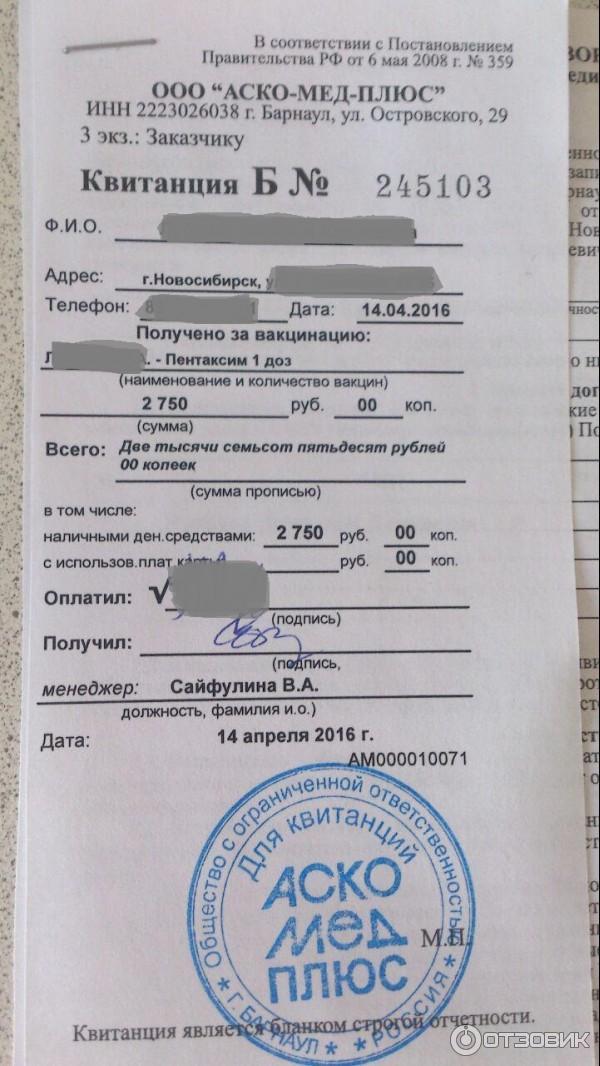 В соответствии с Постановлением
Правительства РФ от 6 мая 2008 г. № 359
ООО “АСКО-МЕД-ПЛЮС”
ИНН 2223026038 г. Барнаул, ул. Островского, 29
3 экз.: Заказчику
Квитанция Б № 245103
Ф.И.О.
Адрес: г.Новосибирск,
Телефон: 8 1 Дата: 14.04.2016
Получено за вакцинацию:
Л А. - Пентаксим 1 доз
(наименование и количество вакцин)
2 750 руб. 00 коп.
(сумма)
Всего: Две тысячи семьсот пятьдесят рублей
00 копеек
(сумма прописью)
в том числе:
наличными ден.средствами: 2 750 руб. 00 коп.
с использов.плат.карты руб. 00 коп.
Оплатил:
(подпись)
Получил:
(подпись,
менеджер: Сайфулина В.А.
должность, фамилия и.о.)
Дата: 14 апреля 2016 г.
АМ000010071
Общество с ограниченной ответственностью
Для квитанций
АСКО
МЕД
ПЛЮС
М.П.
* Г. БАРНАУЛ * РОССИЯ *
Квитанция является бланком строгой отчетности.
ОТЗОВИК